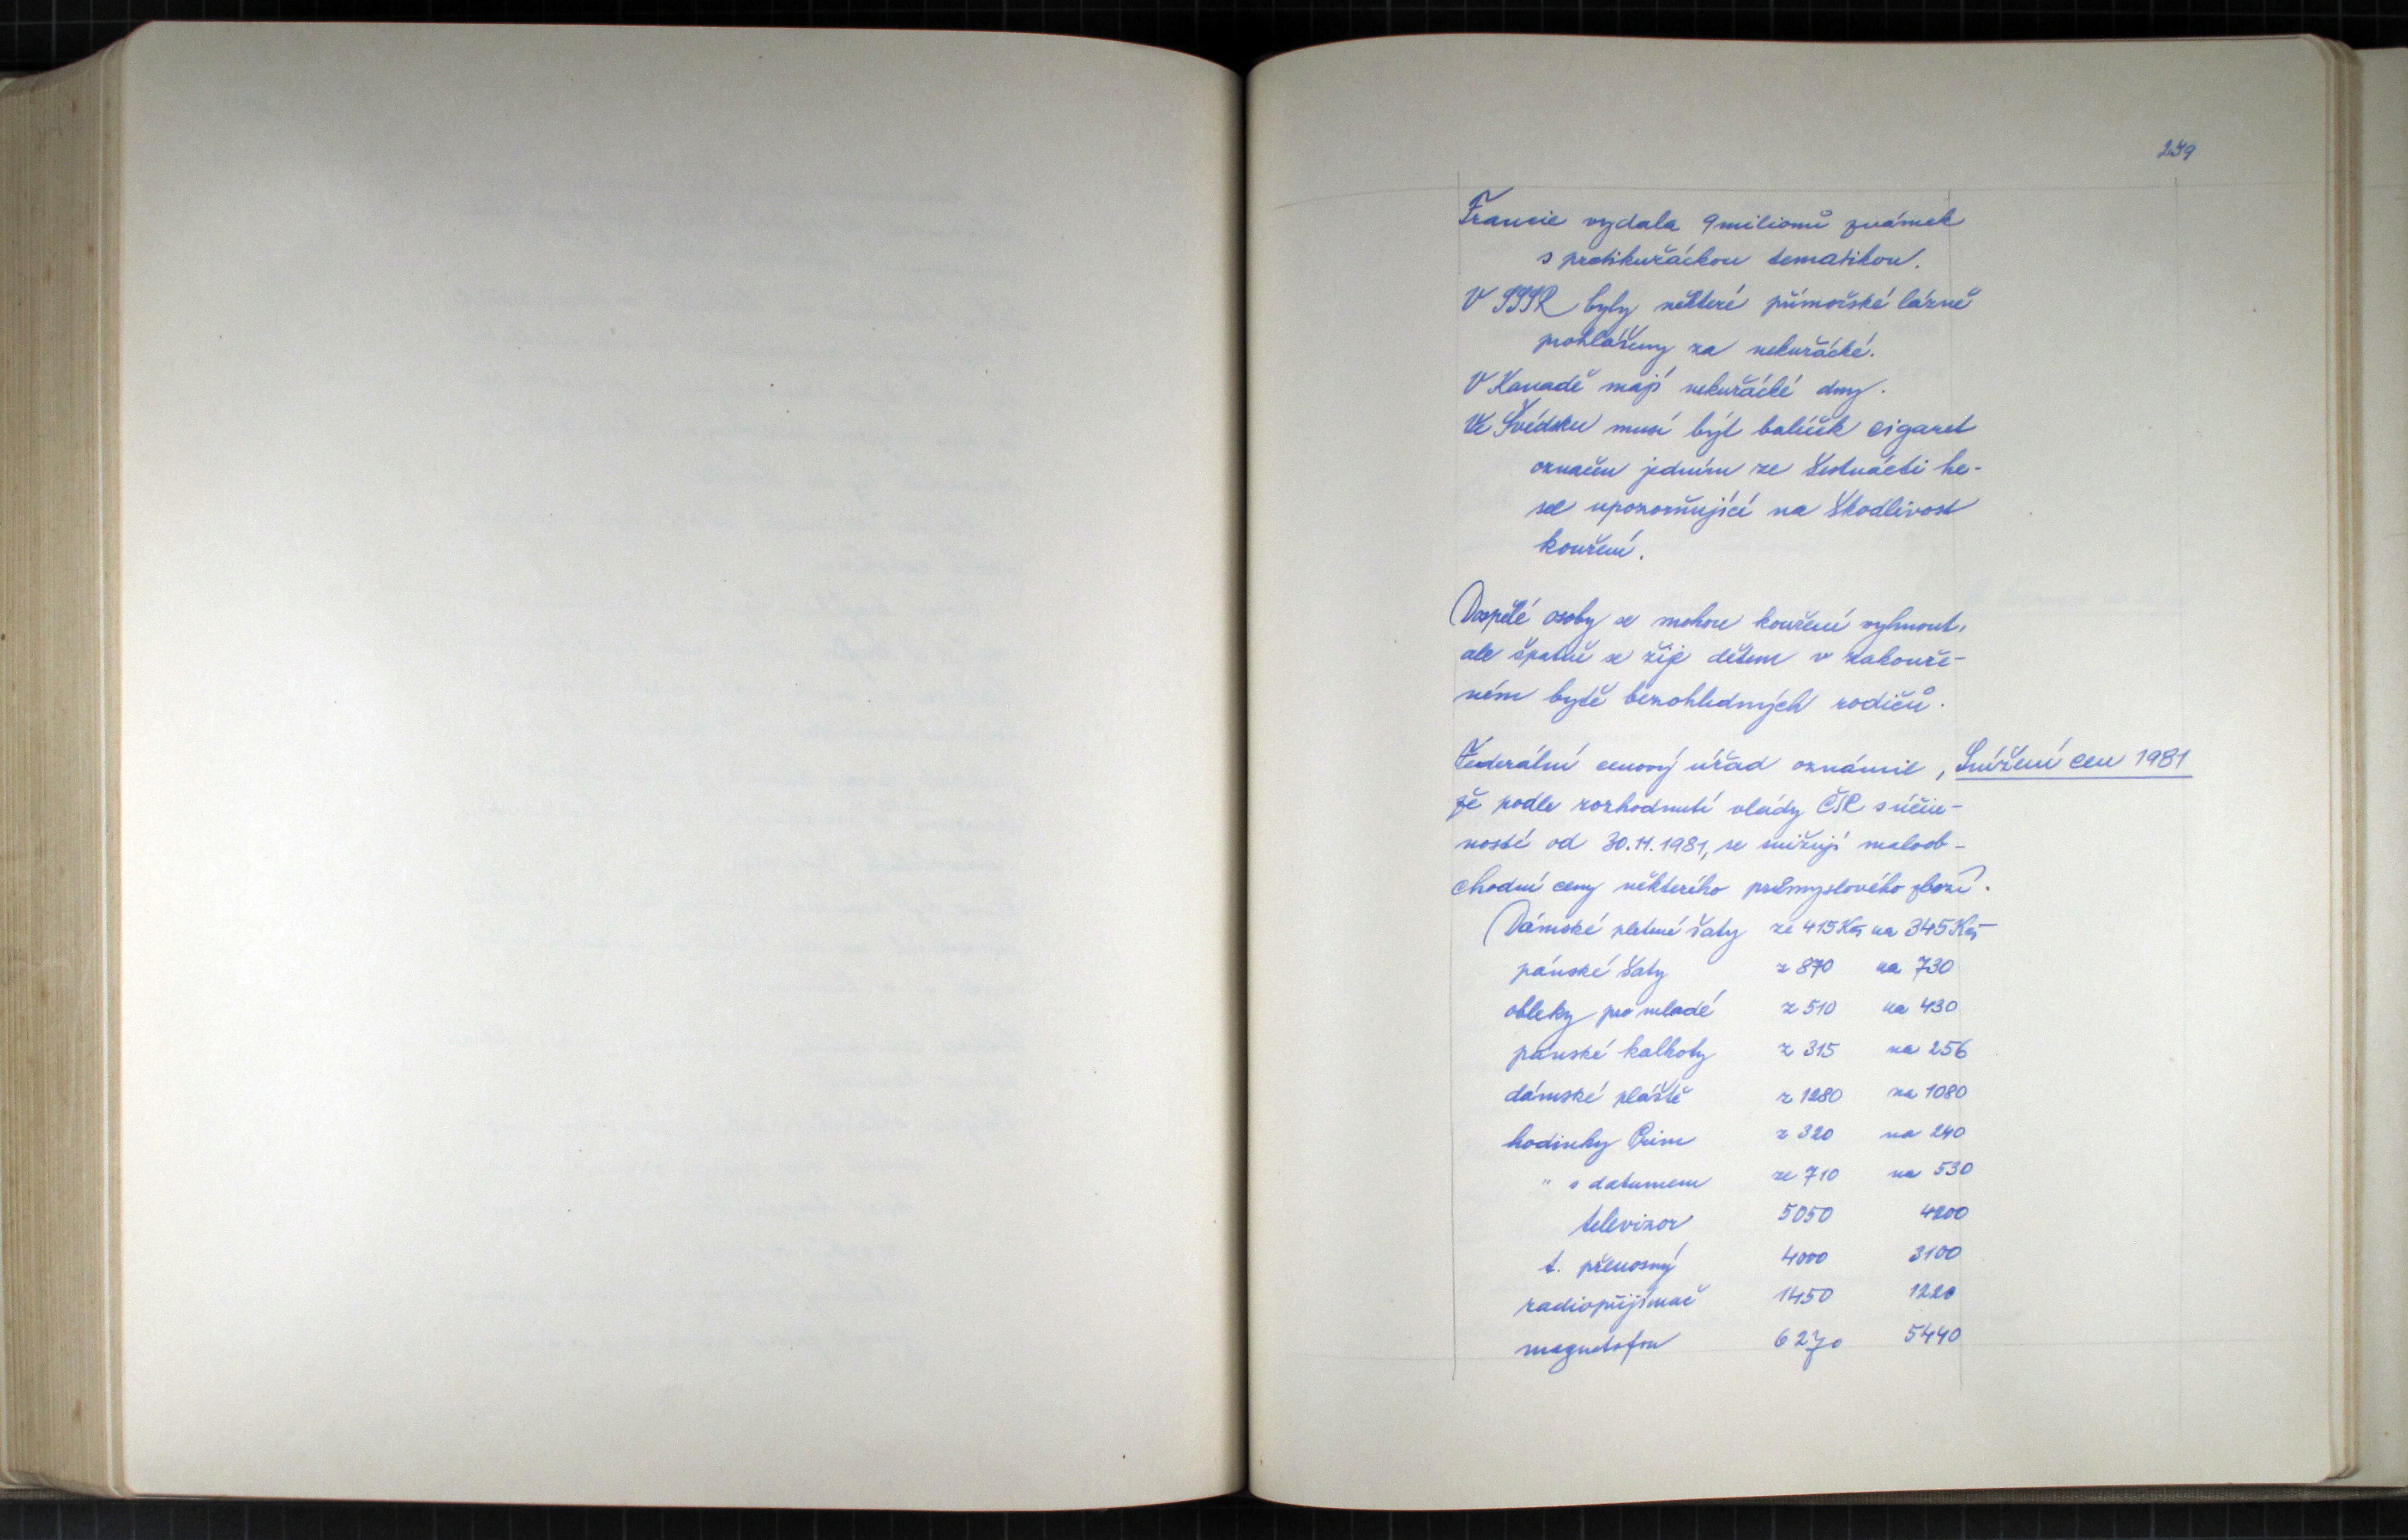 259
Francie vydala 9 milionů známek
s protikuřáckou tematikou.
V SSSR byly některé přímořské lázně
prohlášeny za nekuřácké.
V Kanadě mají nekuřácké dny.
Ve Švédsku musí být balíček cigaret
označen jedním ze šestnácti he-
sel upozorňující na škodlivost
kouření.
Dospělé osoby se mohou kouření vyhnout,
ale špatně se žije dětem v zakouře-
ném bytě bezohledných rodičů.
Federální cenový úřad oznámil, Snížení cen 1981
že podle rozhodnutí vlády ČSR s účin-
ností od 30.11.1981, se snižují maloob-
chodní ceny některého průmyslového zboží.
Dámské pletené šaty ze 415 Kčs na 345 Kčs
pánské šaty z 870 na 730
obleky pro mladé z 510 na 430
pánské kalhoty z 315 na 256
dámské pláště z 1280 na 1080
hodinky Prim z 320 na 240
" s datumem ze 710 na 530
televizor 5050 4200
t. přenosný 4000 3100
radiopřijímač 1450 1220
magnetofon 6270 5440